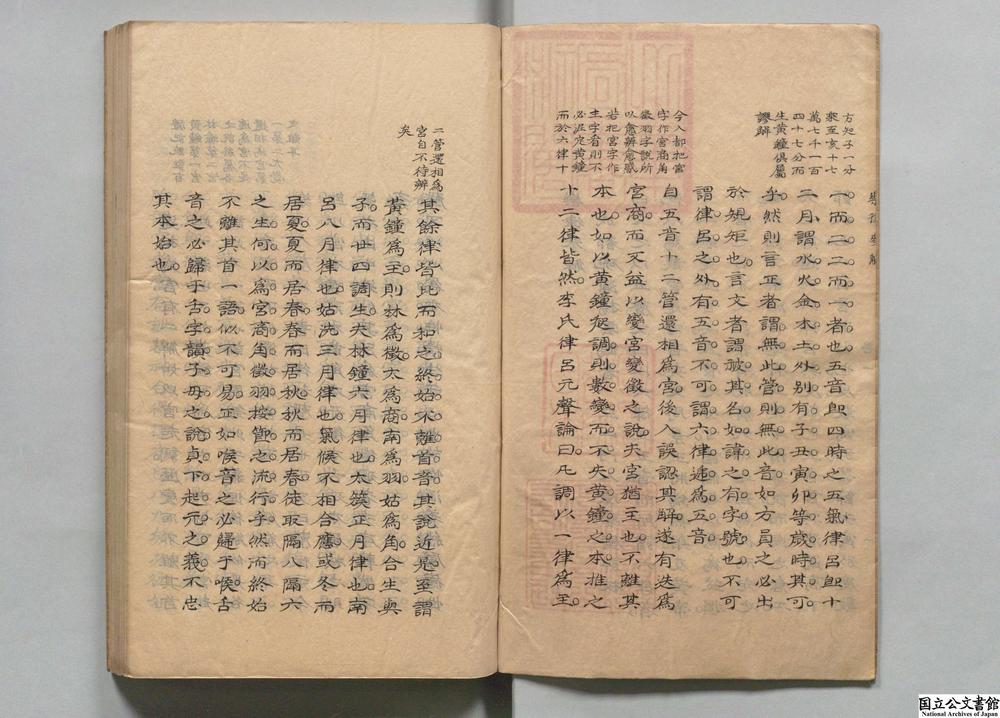 方知子一分
衆至亥十七
萬七千一百
四十七分而
生黃鐘俱屬
謬解
一而二二而一者也五音卽四時之五氣律呂卽十
二月謂水火金木土外別有子丑寅卯等歲時其可
乎然則言正者謂無此管則無此音如方員之必出
於規矩也言文者謂被其名如諱之有字號也不可
謂律呂之外有五音不可謂六律遞爲五音
今人却把宮
字作宮商角
徵羽字說所
以愈辨愈惑
若把宮字作
主字看則不
必泥定黃鐘
而於六律十
自五音十二管還相爲宮後人誤認其解遂有迭爲
宮商而又益以變宮變徵之說夫宮猶主也不離其
本也如以黃鐘起調則數變而不失黃鐘之本推之
十二律皆然李氏律呂元聲論曰凡調以一律爲主
二管還相爲
宮自不待辨
矣
其餘律皆比而和之終始不離首音其說近是至謂
黃鐘爲主則林爲徵太爲商南爲羽姑爲角合生與
子而廿四調生夫林鐘六月律也太簇正月律也南
呂八月律也姑洗三月律也氣候不相合應或冬而
居夏夏而居春春而居秋秋而居春徒取隔八隔六
之生何以爲宮商角徵羽按節之流行乎然而終始
不離其首一語似不可易正如喉音之必歸于喉舌
音之必歸于舌字韻子母之說貞下起元之義不忠
其本始也
国立公文書館
National Archives of Japan